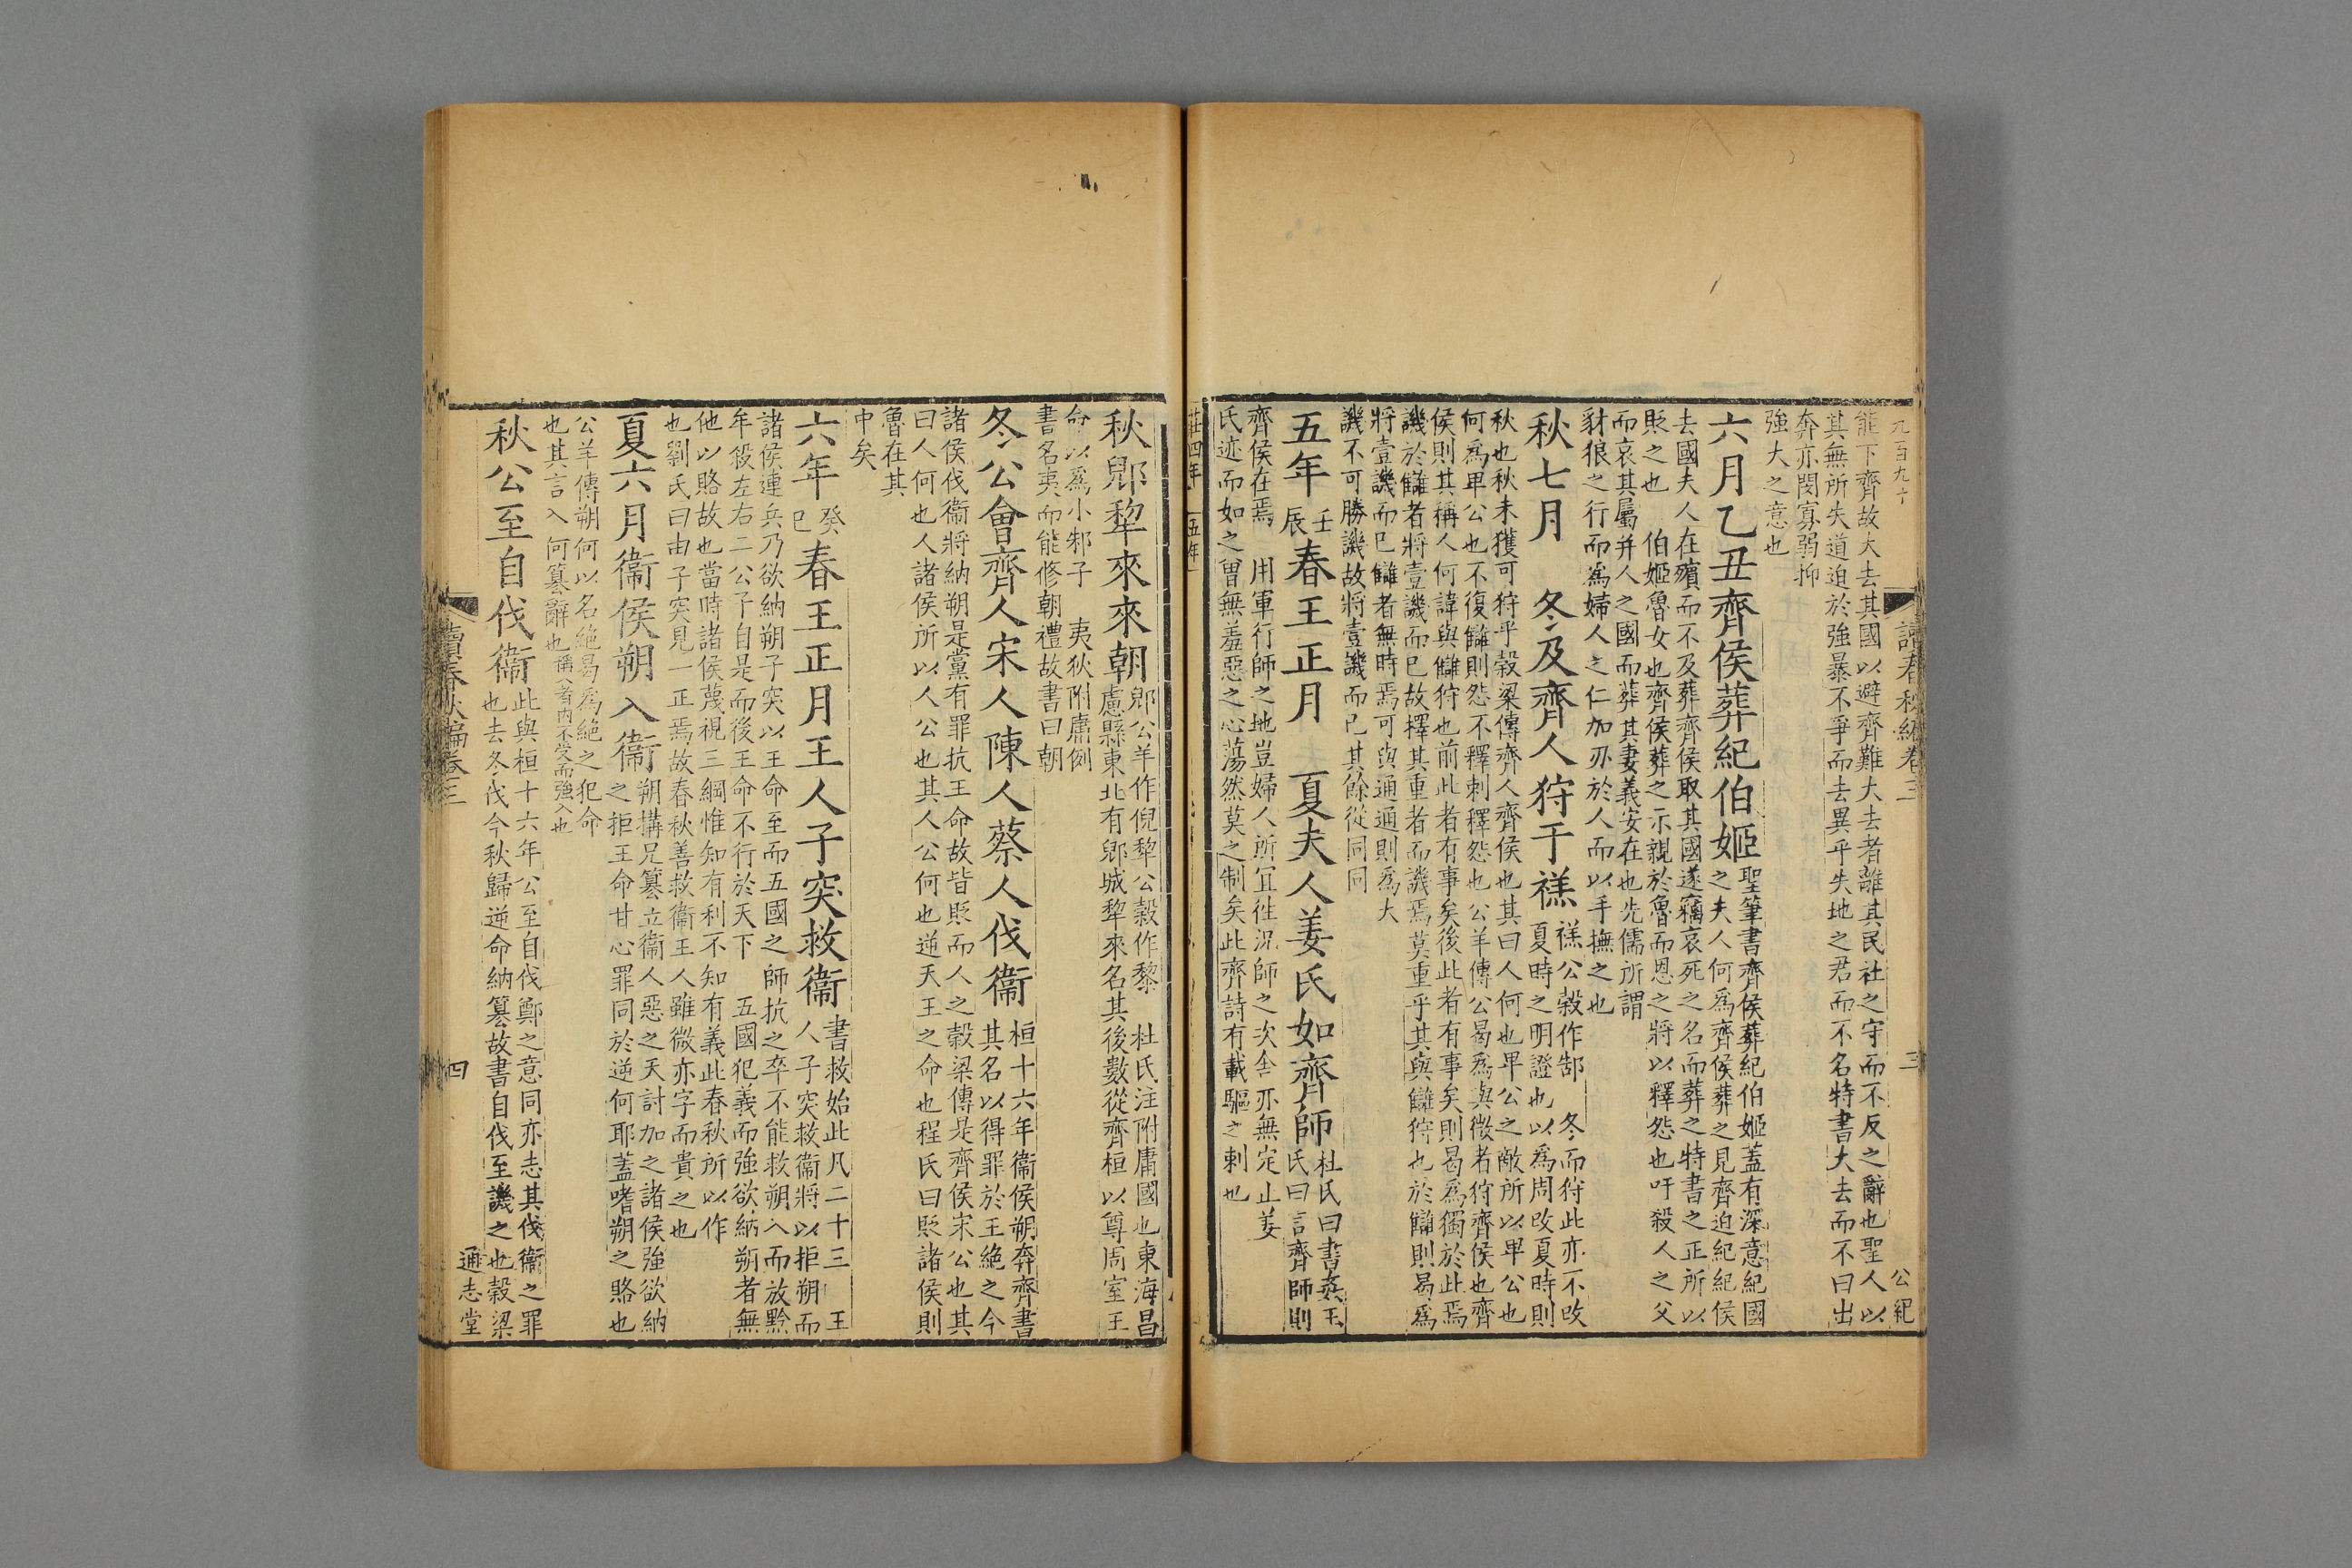 九百九十
讀春秋編卷三
三
公紀
能下齊故大去其國以避齊難大去者離其民社之守而不反之辭也聖人以
其無所失道迫於強暴不爭而去異乎失地之君而不名特書大去而不曰出
奔亦閔寡弱抑
強大之意也
六月乙丑齊侯葬紀伯姬聖筆書齊侯葬紀伯姬蓋有深意紀國
之夫人何爲齊侯葬之見齊迫紀紀侯
去國夫人在殯而不及葬齊侯取其國遂竊哀死之名而葬之特書之正所以
貶之也 伯姬魯女也齊侯葬之示親於魯而恩之將以釋怨也吁殺人之父
而哀其屬并人之國而葬其妻義安在也先儒所謂
豺狼之行而爲婦人之仁加刃於人而以手撫之也
秋七月 冬公及齊人狩于禚禚公穀作郜 冬而狩此亦不改
夏時之明證也以爲周改夏時則
秋也秋未獲可狩乎穀梁傳齊人齊侯也其曰人何也卑公之敵所以卑公也
何爲卑公也不復讎則怨不釋刺釋怨也公羊傳公曷爲與微者狩齊侯也齊
侯則其稱人何諱與讎狩也前此者有事矣後此者有事矣則曷爲獨於此焉
譏於讎者將壹譏而已故擇其重者而譏焉莫重乎其與讎狩也於讎則曷爲
將壹譏而已讎者無時焉可與通通則爲大
譏不可勝譏故將壹譏而已其餘從同同
五年壬辰春王正月 夏夫人姜氏如齊師杜氏曰書姦王
氏曰言齊師則
齊侯在焉 用軍行師之地豈婦人所冝徃況師之次舍亦無定止姜
氏迹而如之曽無羞惡之心蕩然莫之制矣此齊詩有載驅之刺也
莊四年 五年
秋郳犂來來朝郳公羊作倪犂公穀作黎 杜氏注附庸國也東海昌
慮縣東北有郳城犂來名其後數從齊桓以尊周室王
命以爲小邾子 夷狄附庸例
書名夷而能修朝禮故書曰朝
冬公會齊人宋人陳人蔡人伐衞桓十六年衞侯朔奔齊書
其名以得罪於王絶之今
諸侯伐衞將納朔是黨有罪抗王命故皆貶而人之穀梁傳是齊侯宋公也其
曰人何也人諸侯所以人公也其人公何也逆天王之命也程氏曰貶諸侯則
魯在其
中矣
六年癸巳春王正月王人子突救衞書救始此凡二十三 王
人子突救衞將以拒朔而
諸侯連兵乃欲納朔子突以王命至而五國之師抗之卒不能救朔入而放黔
年殺左右二公子自是而後王命不行於天下 五國犯義而強欲納朔者無
他以賂故也當時諸侯蔑視三綱惟知有利不知有義此春秋所以作
也劉氏曰由子突見一正焉故春秋善救衞王人雖微亦字而貴之也
夏六月衞侯朔入衞朔搆兄簒立衞人惡之天討加之諸侯強欲納
之拒王命甘心罪同於逆何耶蓋嗜朔之賂也
公羊傳朔何以名絶曷爲絶之犯命
也其言入何簒辭也稱入者内不受而強入也
秋公至自伐衞此與桓十六年公至自伐鄭之意同亦志其伐衞之罪
也去冬伐今秋歸逆命納簒故書自伐至譏之也穀梁
讀春秋編卷三
四
通志堂